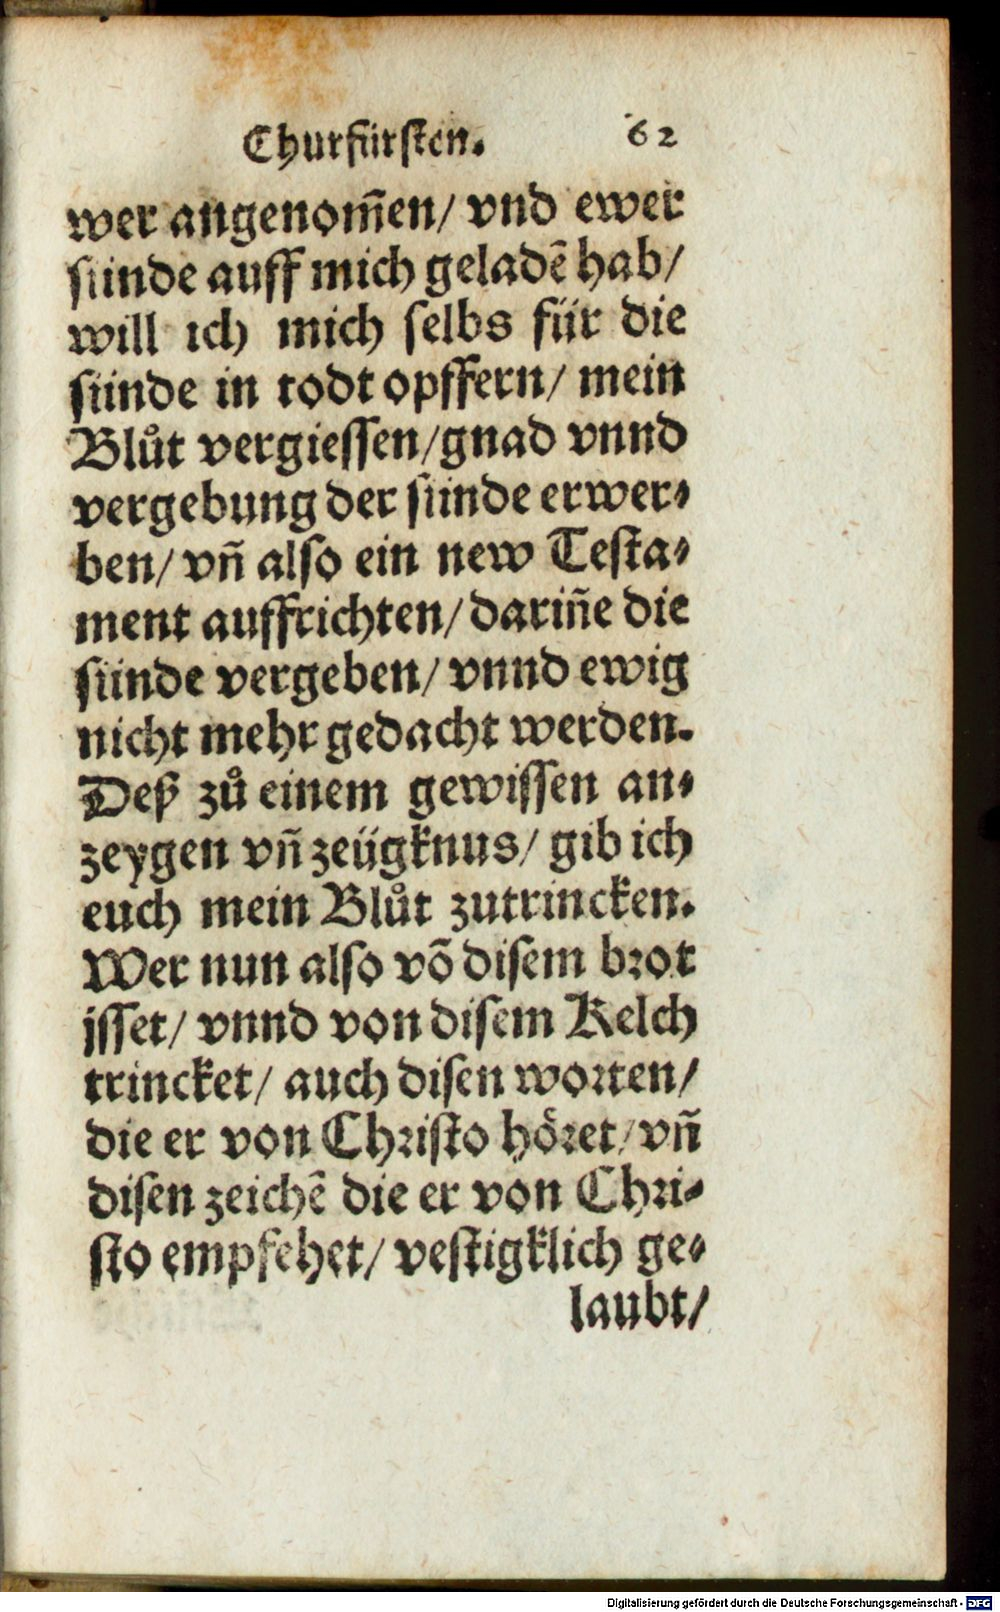 Churfürſten. 62
wer angenom̃en/ vnd ewer
ſünde auff mich geladẽ hab/
will ich mich ſelbs für die
ſünde in todt opffern/ mein
Blůt vergieſſen/ gnad vnnd
vergebung der ſünde erwer⸗
ben/ vñ alſo ein new Teſta⸗
ment auffrichten/ dariñe die
ſünde vergeben/ vnnd ewig
nicht mehr gedacht werden.
Deß zů einem gewiſſen an⸗
zeygen vñ zeügknus/ gib ich
euch mein Blůt zutrincken.
Wer nun alſo võ diſem brot
iſſet/ vnnd von diſem Kelch
trincket/ auch diſen worten/
die er von Chriſto höret/ vñ
diſen zeichẽ die er von Chri⸗
ſto empfehet/ veſtigklich ge⸗
laubt/
Digitalisierung gefördert durch die Deutsche Forschungsgemeinschaft - DFG